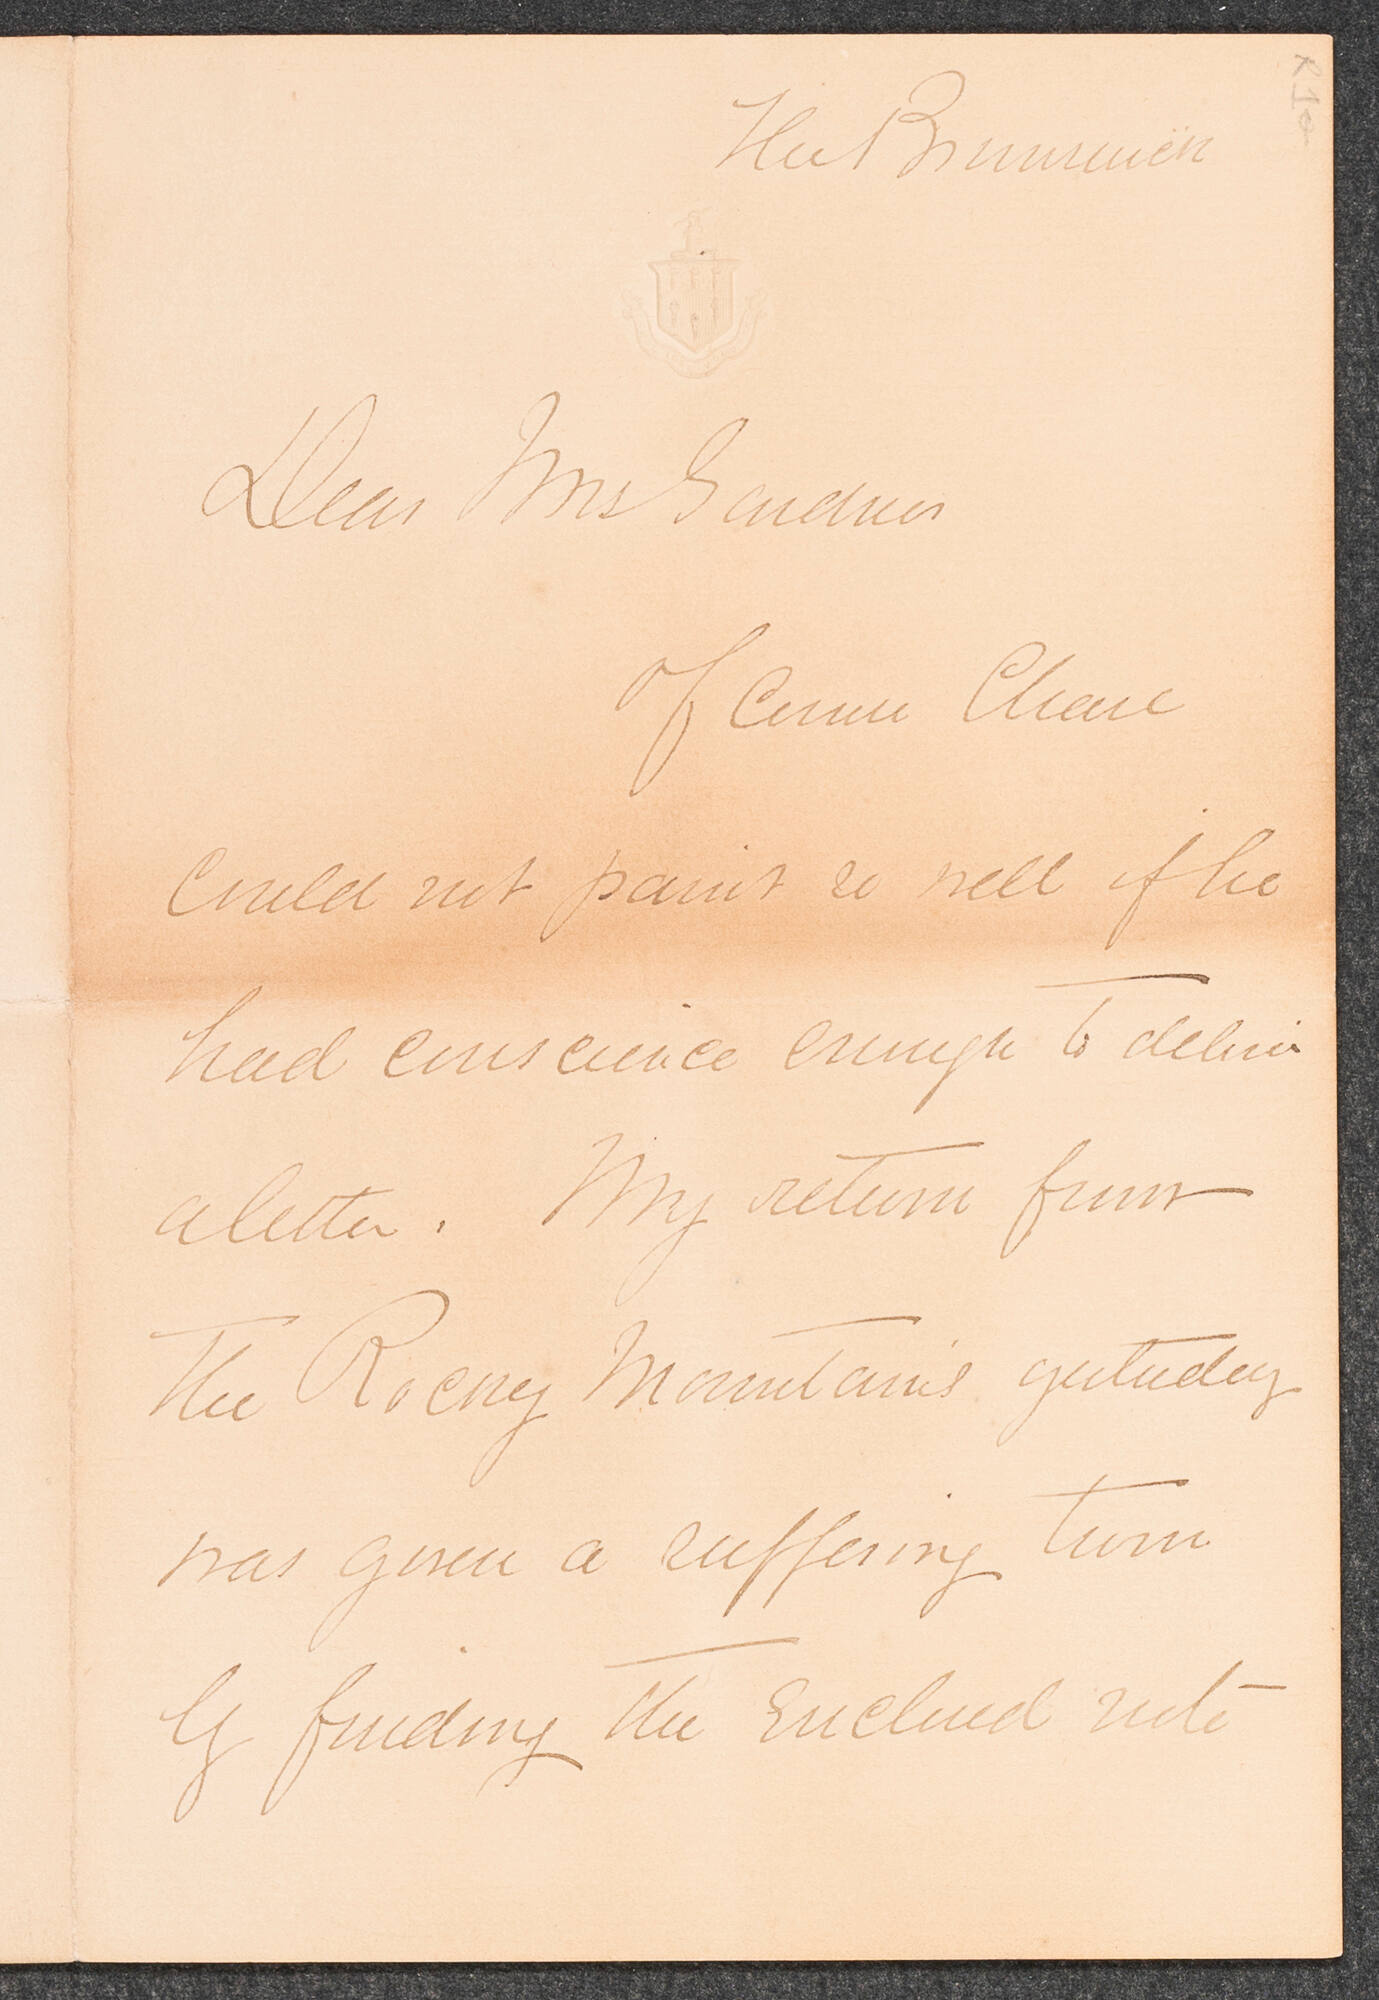 The Brunswick
R10
Dear Mrs Gardner
Of course Chase
could not paint so well if he
had conscience enough to deliver
a letter. My return from
the Rocky Mountains yesterday
was given a suffering turn
by finding the enclosed note